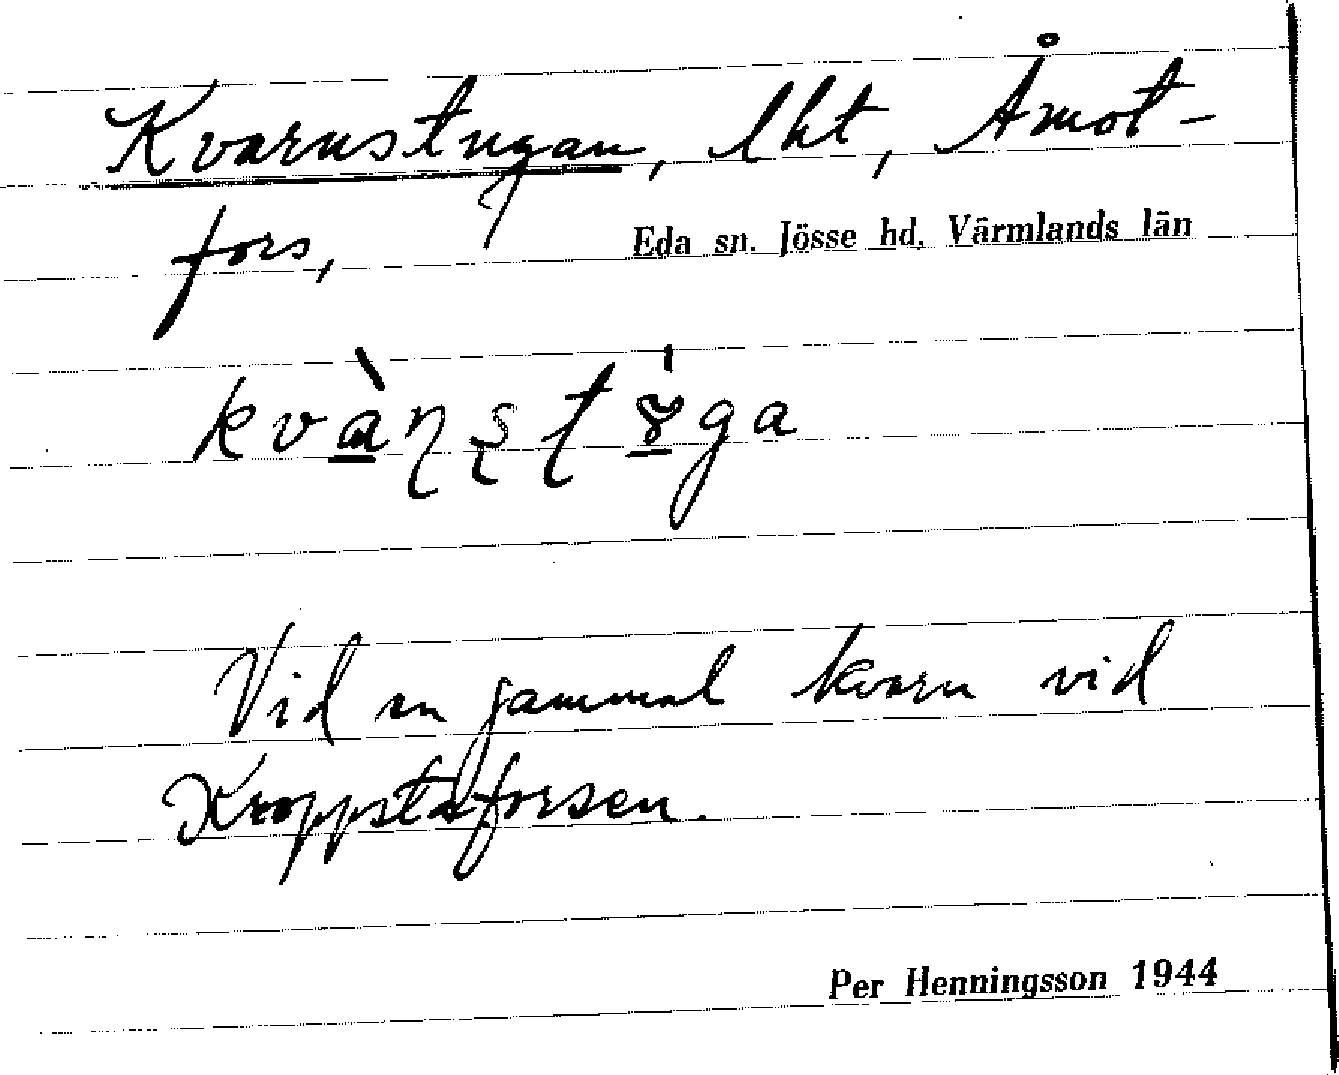 Kvarnstugan, lht, Åmot-
fors,
Eda sn. Jösse hd. Värmlands län
kvàɳʂʈ8́ga
Vid en gammal kvarn vid
Kroppstaforsen.
Per Henningsson 1944